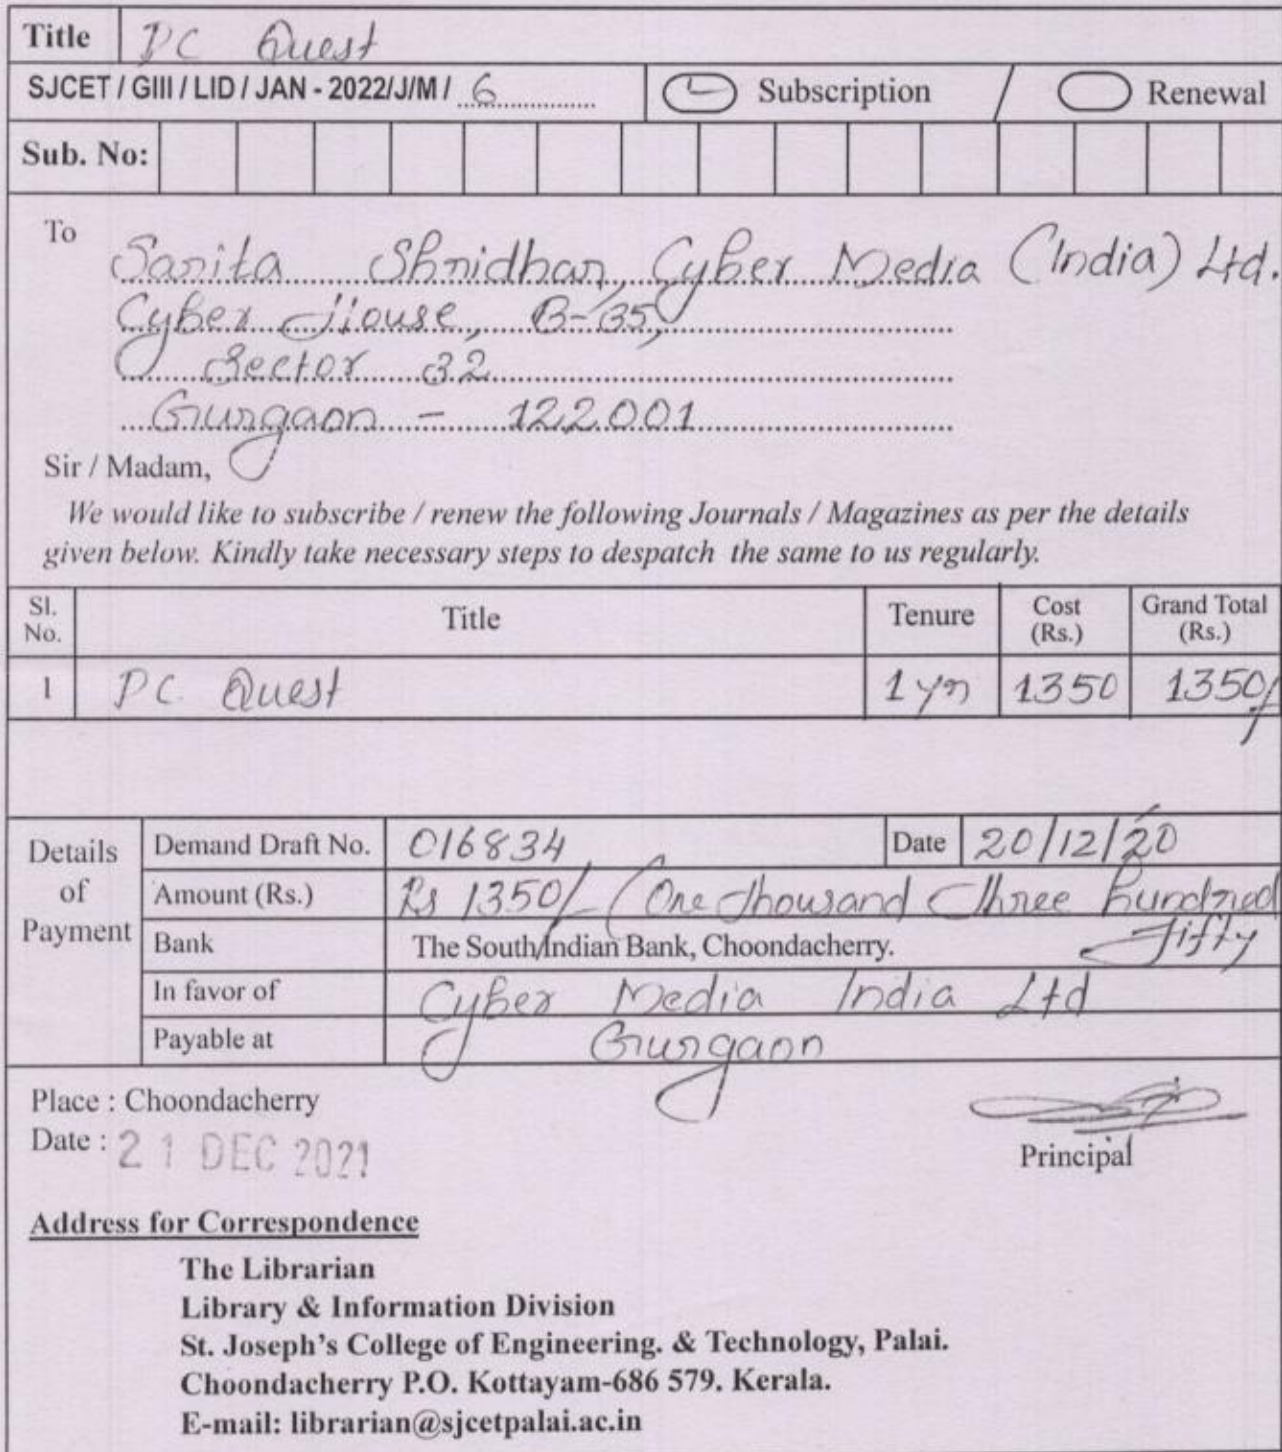 Title PC Quest
SJCET / GIII / LID / JAN - 2022/J/M / 6 Subscription / Renewal
Sub. No:
To
Sarita Shridhar, Cyber Media (India) Ltd.
Cyber House, B-35,
Sector 32
Gurgaon - 122001
Sir / Madam,
We would like to subscribe / renew the following Journals / Magazines as per the details
given below. Kindly take necessary steps to despatch the same to us regularly.
Sl. No. Title Tenure Cost (Rs.) Grand Total (Rs.)
1 PC Quest 1 yr 1350 1350/-
Details of Payment
Demand Draft No. 016834 Date 20/12/20
Amount (Rs.) Rs 1350/- (One Thousand Three hundred
Fifty
Bank The South Indian Bank, Choondacherry.
In favor of Cyber Media India Ltd
Payable at Gurgaon
Place : Choondacherry
Date : 21 DEC 2021
Principal
Address for Correspondence
The Librarian
Library & Information Division
St. Joseph's College of Engineering. & Technology, Palai.
Choondacherry P.O. Kottayam-686 579. Kerala.
E-mail: librarian@sjcetpalai.ac.in